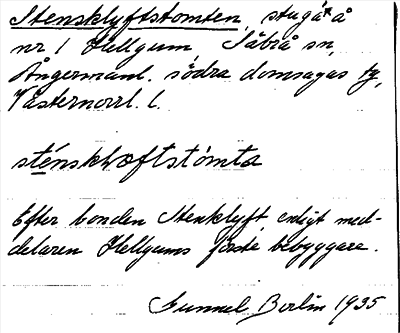 Stensklyftstomten, stuga* å
nr 1 Hellgum, Säbrå sn,
Ångermanl. södra domsagas tg,
Västernorrl. l.
sténsklœftstòmta
Efter bonden Stenklyft enligt med-
delaren Hellgums förste bebyggare.
Gunnel Berlin 1935